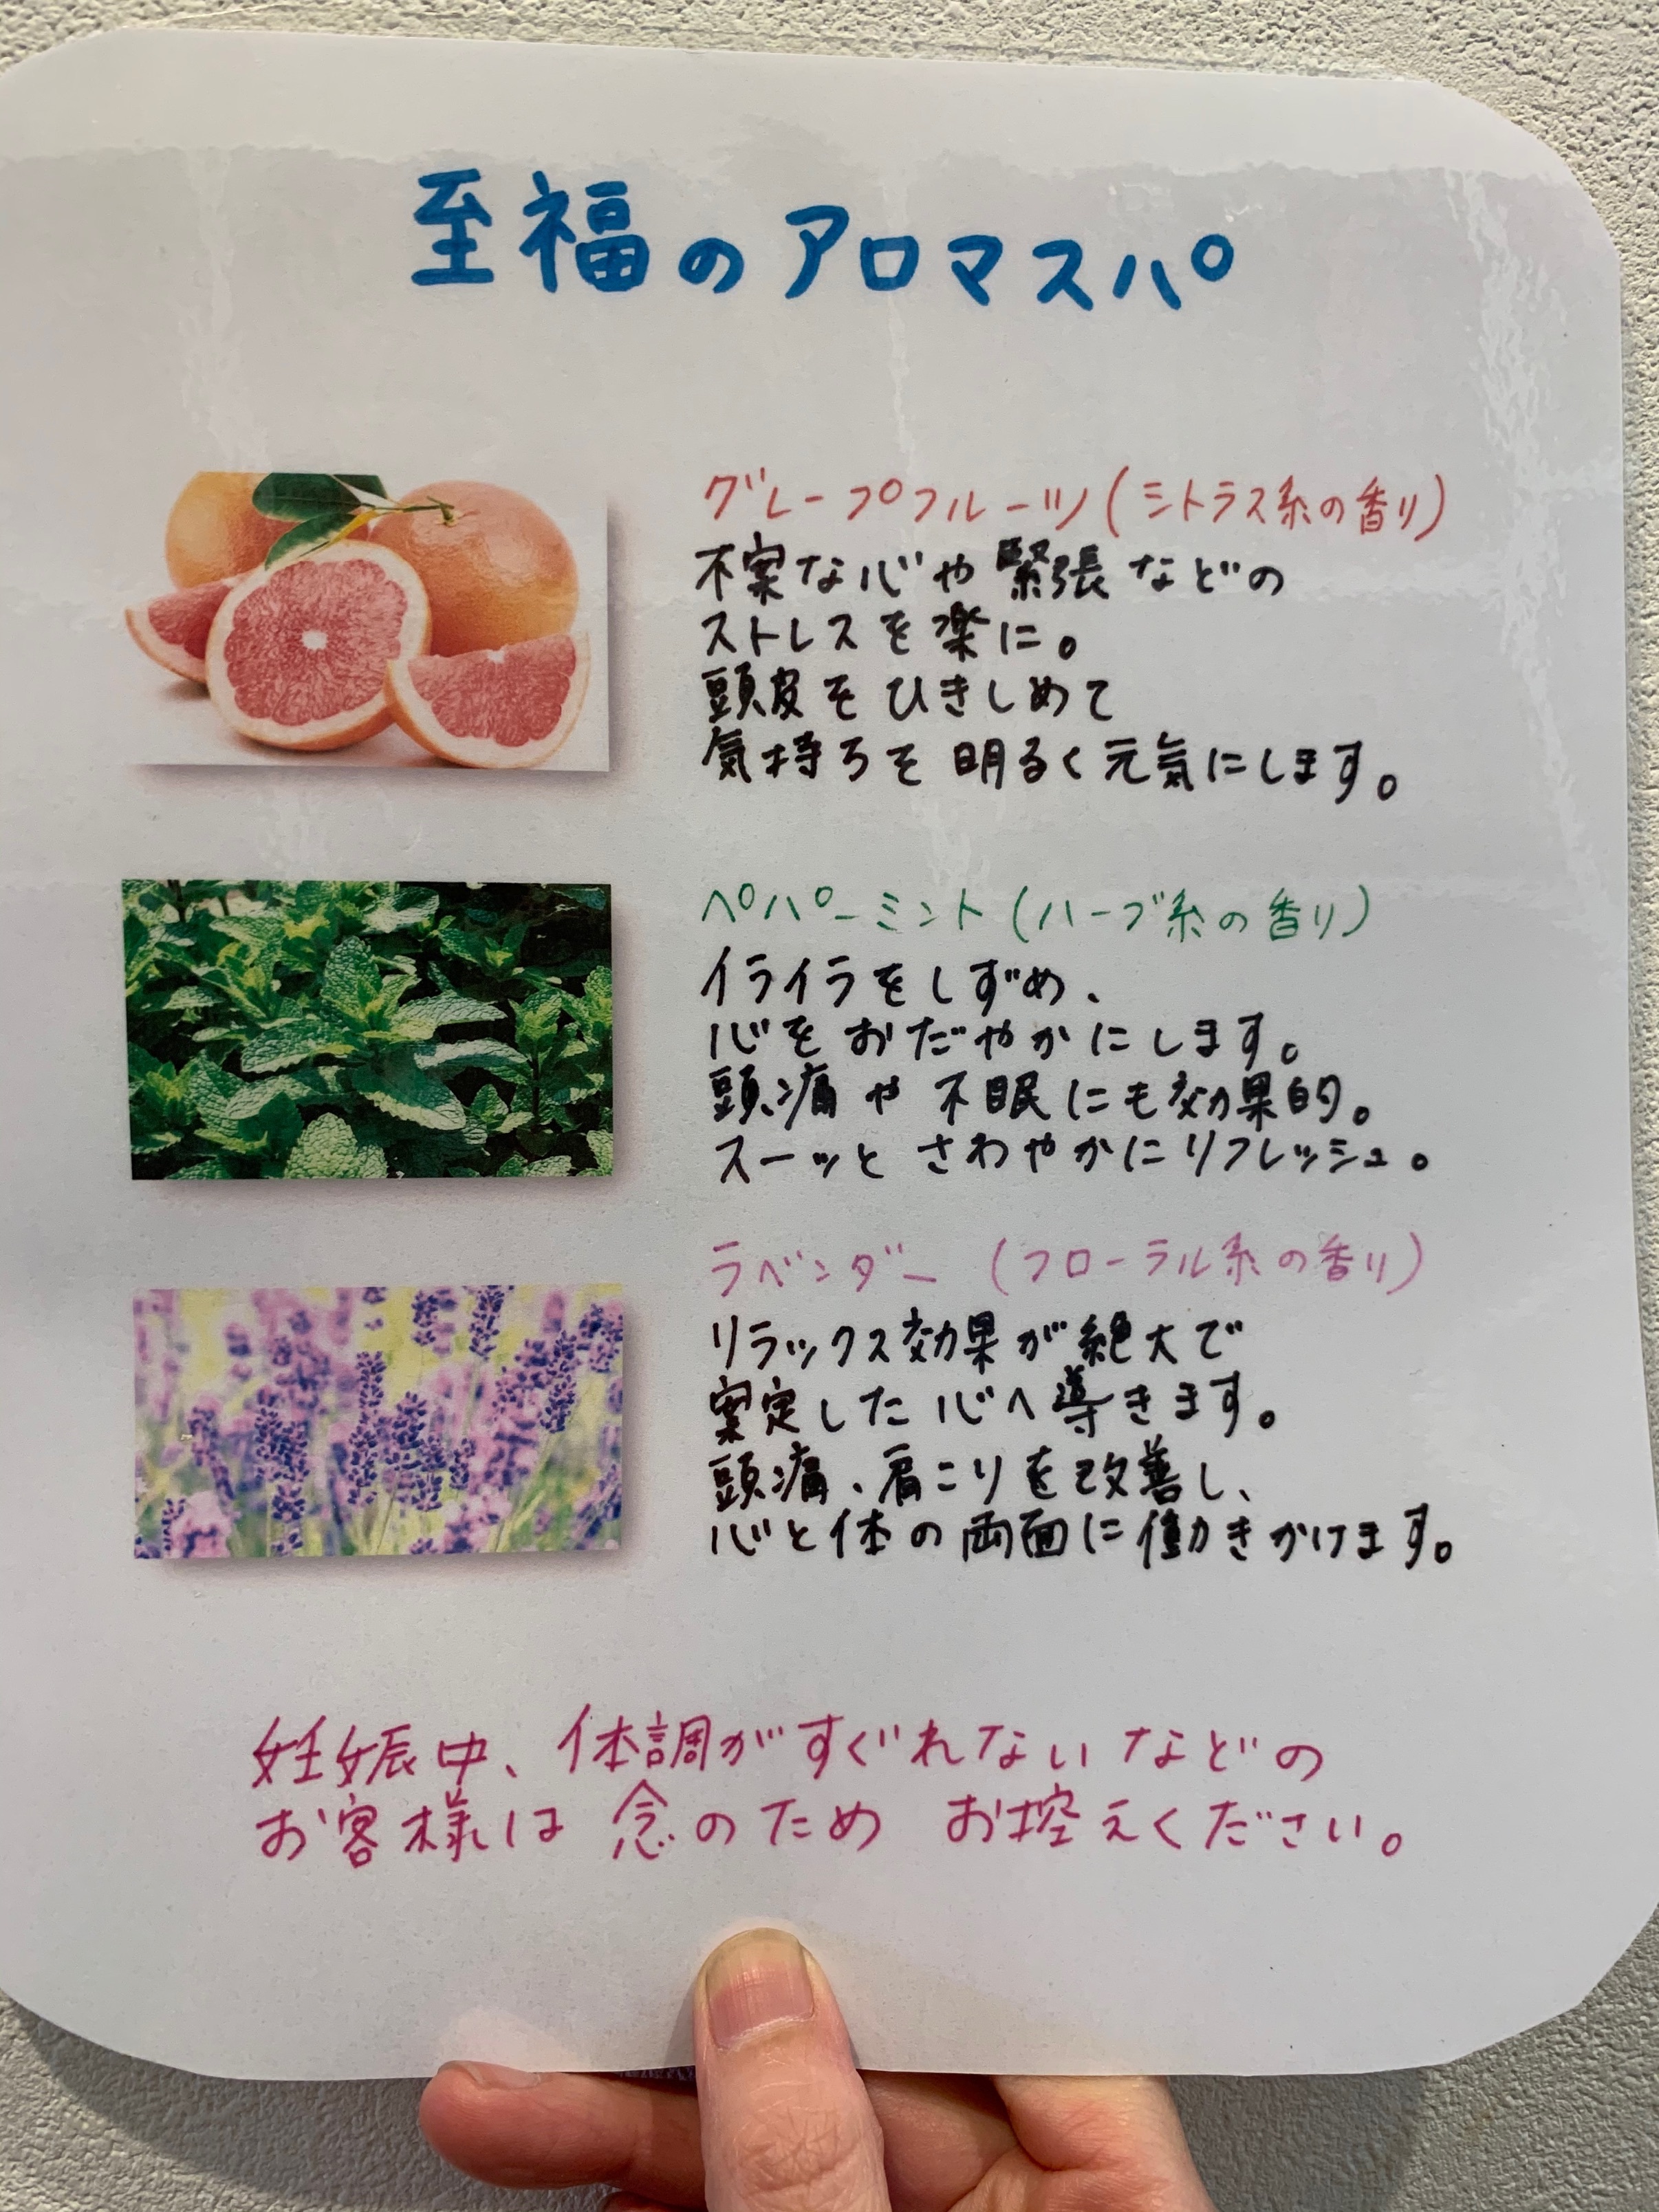 至福のアロマスパ
グレープフルーツ(シトラス系の香り)
不安な心や緊張などの
ストレスを楽に。
頭皮をひきしめて
気持ちを明るく元気にします。
ペパーミント(ハーブ系の香り)
イライラをしずめ、
心をおだやかにします。
頭痛や不眠にも効果的。
スーッとさわやかにリフレッシュ。
ラベンダー(フローラル系の香り)
リラックス効果が絶大で
安定した心へ導きます。
頭痛、肩こりを改善し、
心と体の両面に働きかけます。
妊娠中、体調がすぐれないなどの
お客様は念のためお控えください。